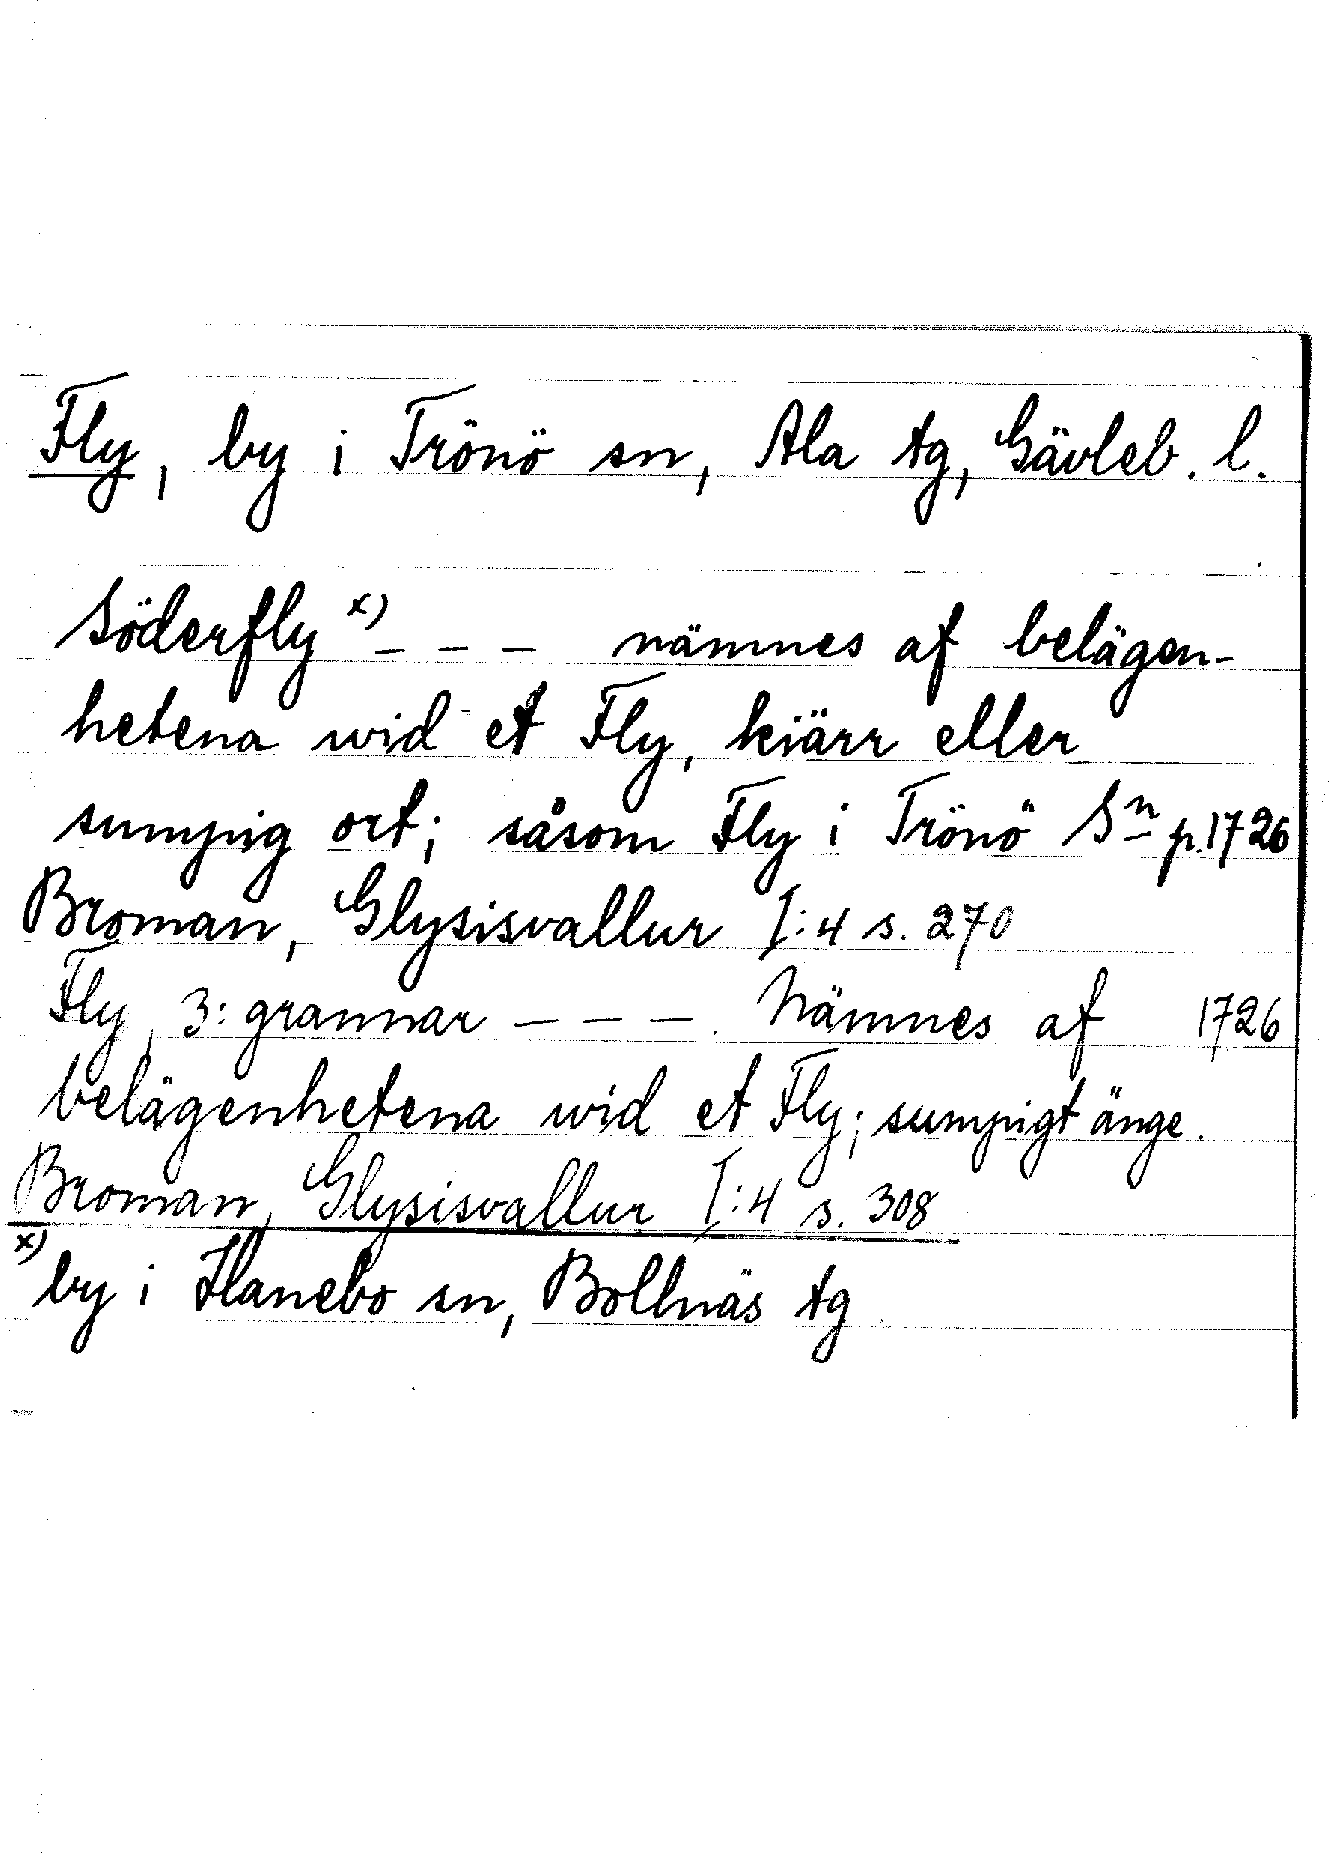 Fly, by i Trönö sn, Ala tg, Gävleb. l.
Söderfly x) _ _ _ nämnes af belägen-
hetena wid et Fly, kiärr eller
sumpig ort; såsom Fly i Trönö Sn p. 1726
Broman, Glysisvallur I:4 s. 270
Fly, 3: grannar _ _ _. Nämnes af 1726
belägenhetena wid et Fly; sumpigt änge.
Broman, Glysisvallur I:4 s. 308
x) by i Hanebo sn, Bollnäs tg